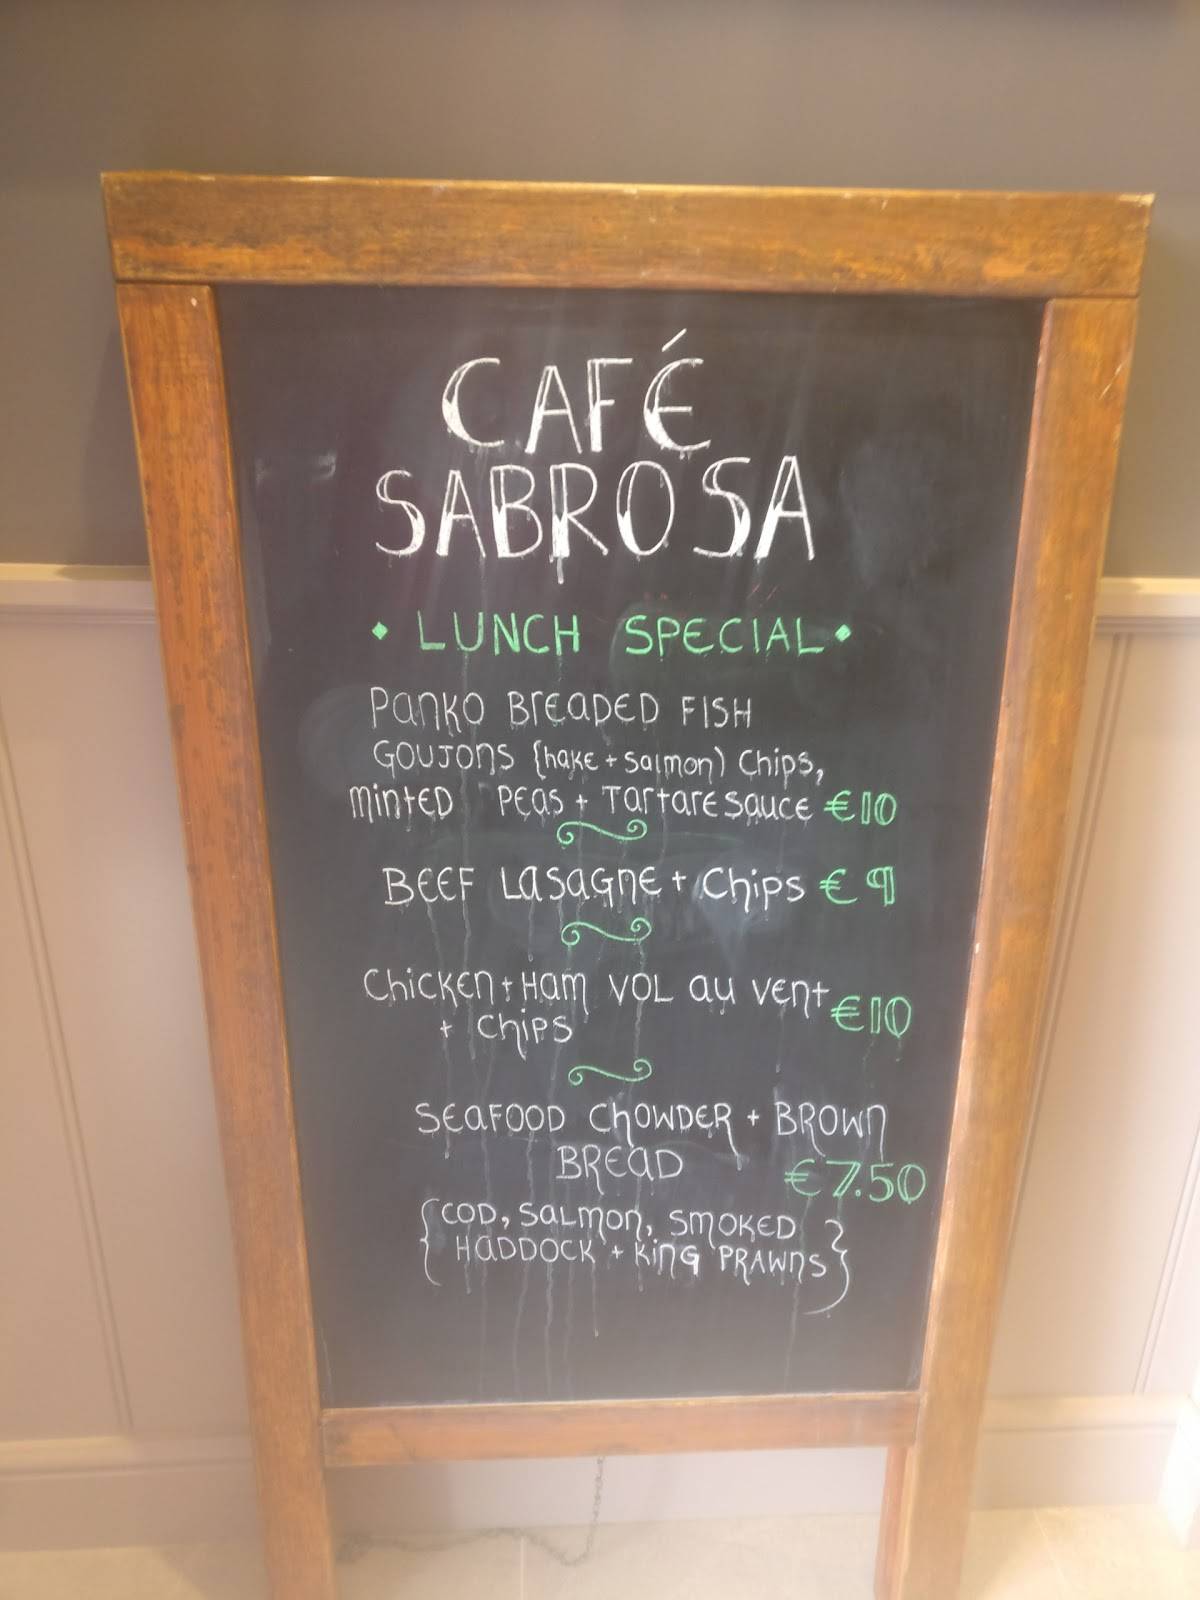 CAFÉ
SABROSA
• LUNCH SPECIAL •
Panko Breaded Fish
Goujons {hake + salmon) Chips,
minted Peas + Tartare sauce €10
Beef Lasagne + Chips €9
Chicken + Ham Vol au vent €10
+ Chips
Seafood Chowder + Brown
Bread €7.50
{Cod, Salmon, Smoked
Haddock + King Prawns}